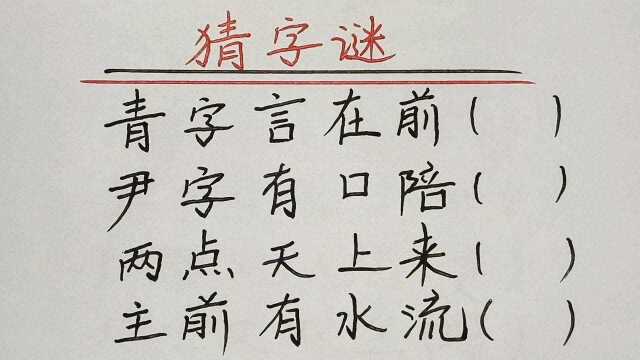 猜字谜
青字言在前( )
尹字有口陪( )
两点天上来( )
主前有水流( )